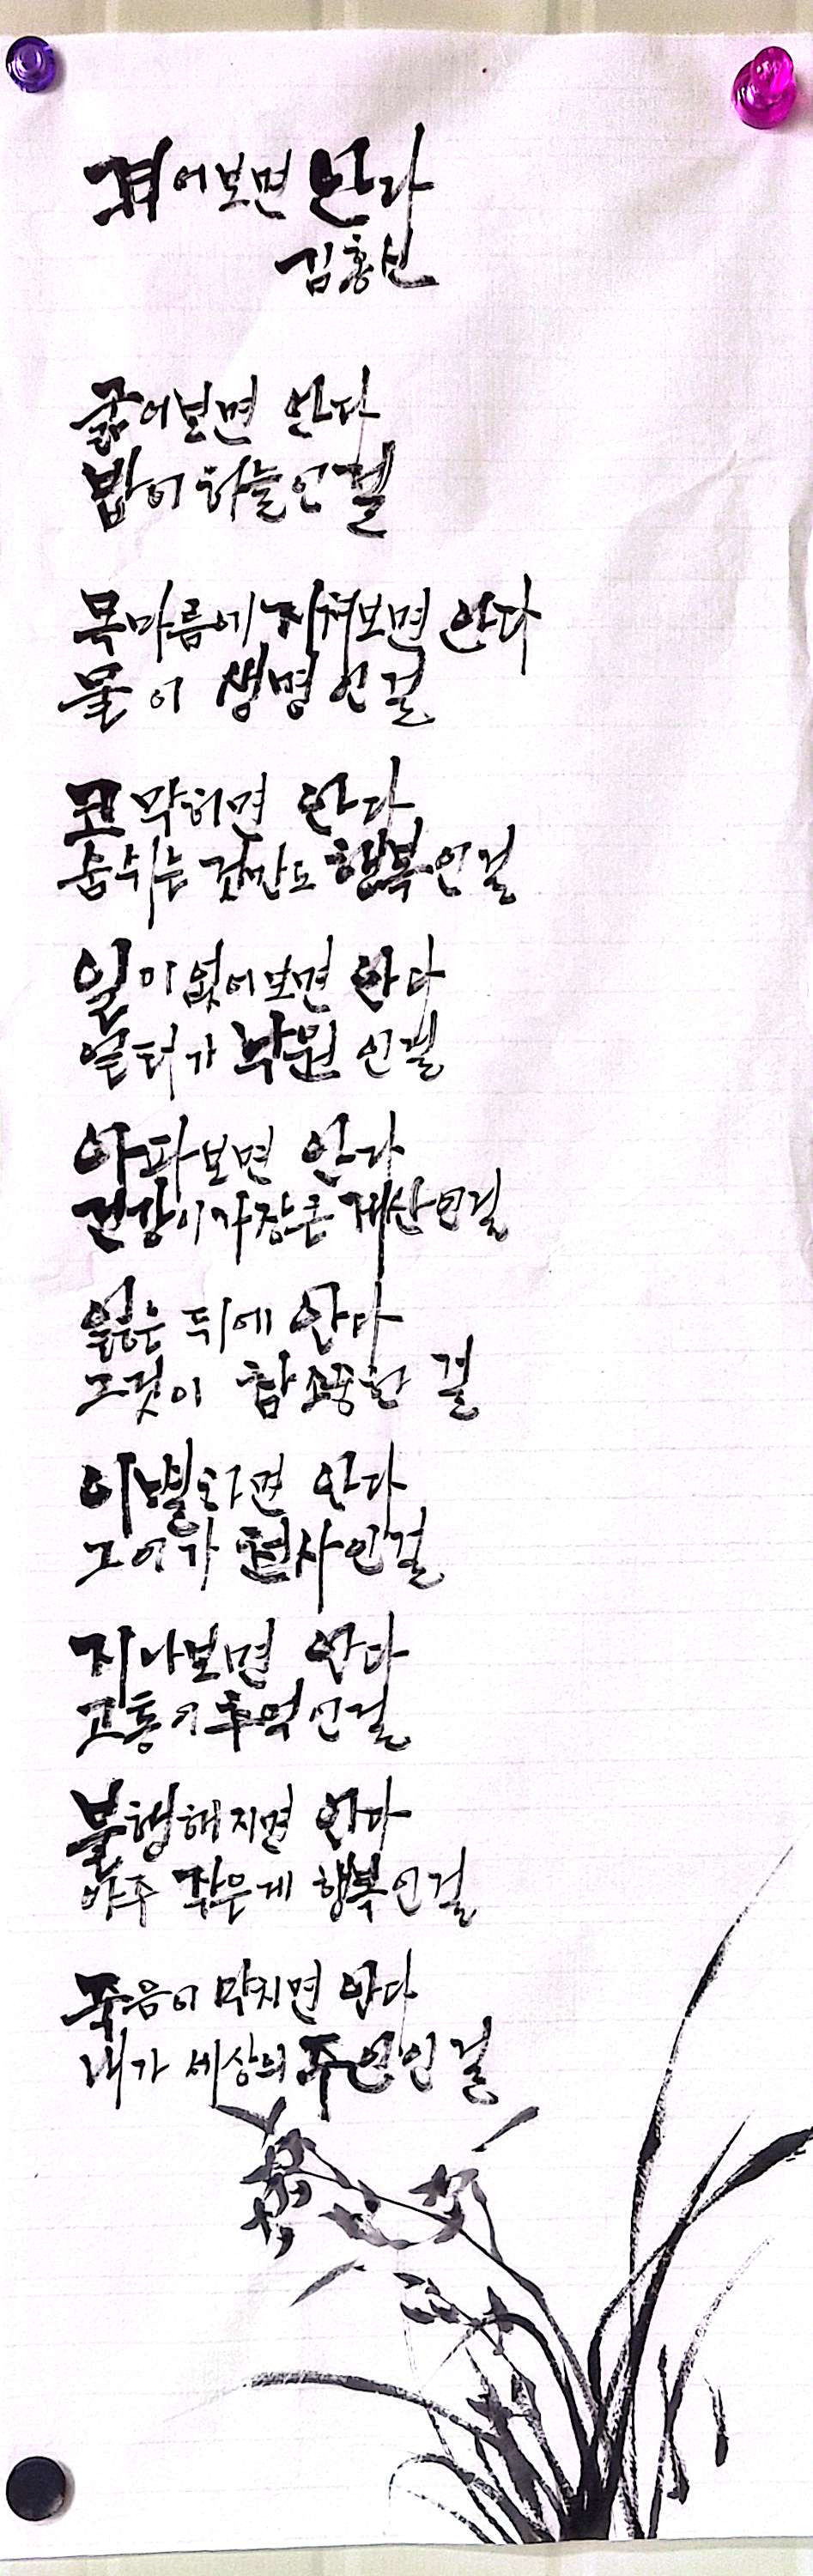 겪어보면 안다
김홍신
굶어보면 안다
밥이 하늘인걸
목마름에 지쳐보면 안다
물이 생명인걸
코 막히면 안다
숨쉬는 것만도 행복인걸
일이 없어보면 안다
일터가 낙원인걸
아파보면 안다
건강이 가장 큰 재산인걸
잃은 뒤에 안다
그것이 참 소중한 걸
이별하면 안다
그이가 천사인걸
지나보면 안다
고통이 추억인걸
불행해지면 안다
아주 작은게 행복인걸
죽음이 닥치면 안다
내가 세상의 주인인걸